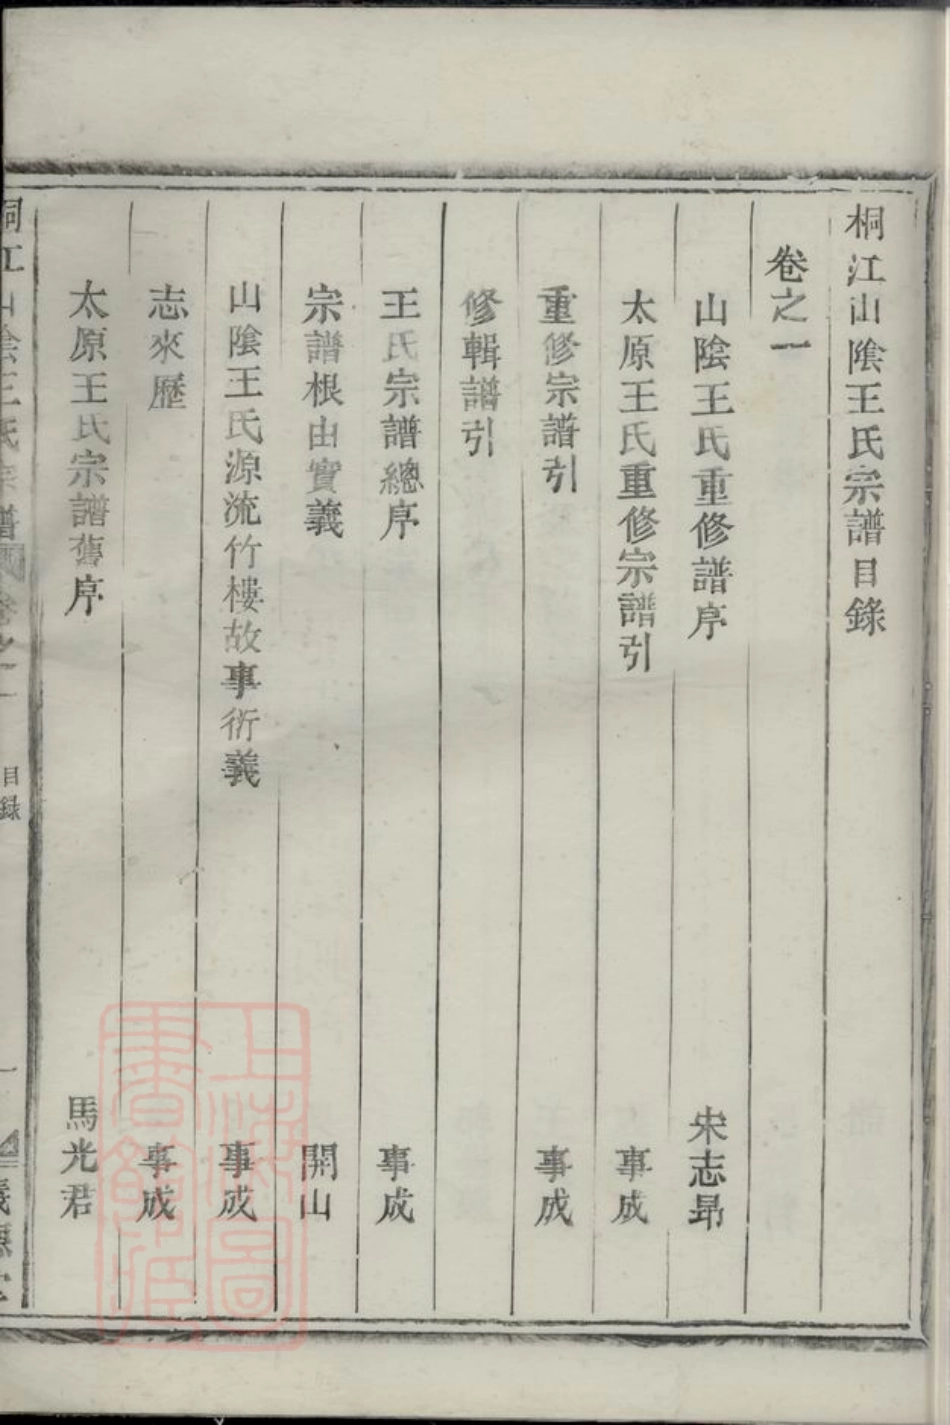 桐江山陰王氏宗譜目錄
卷之一
山陰王氏重修譜序 宋志昂
太原王氏重修宗譜引 事成
重修宗譜引 事成
修輯譜引
王氏宗譜總序 事成
宗譜根由實義 開山
山陰王氏源流竹樓故事衍義 事成
志來歷 事成
太原王氏宗譜舊序 馬光君
桐江山陰王氏宗譜 卷之一 目錄 一
上海圖書館藏